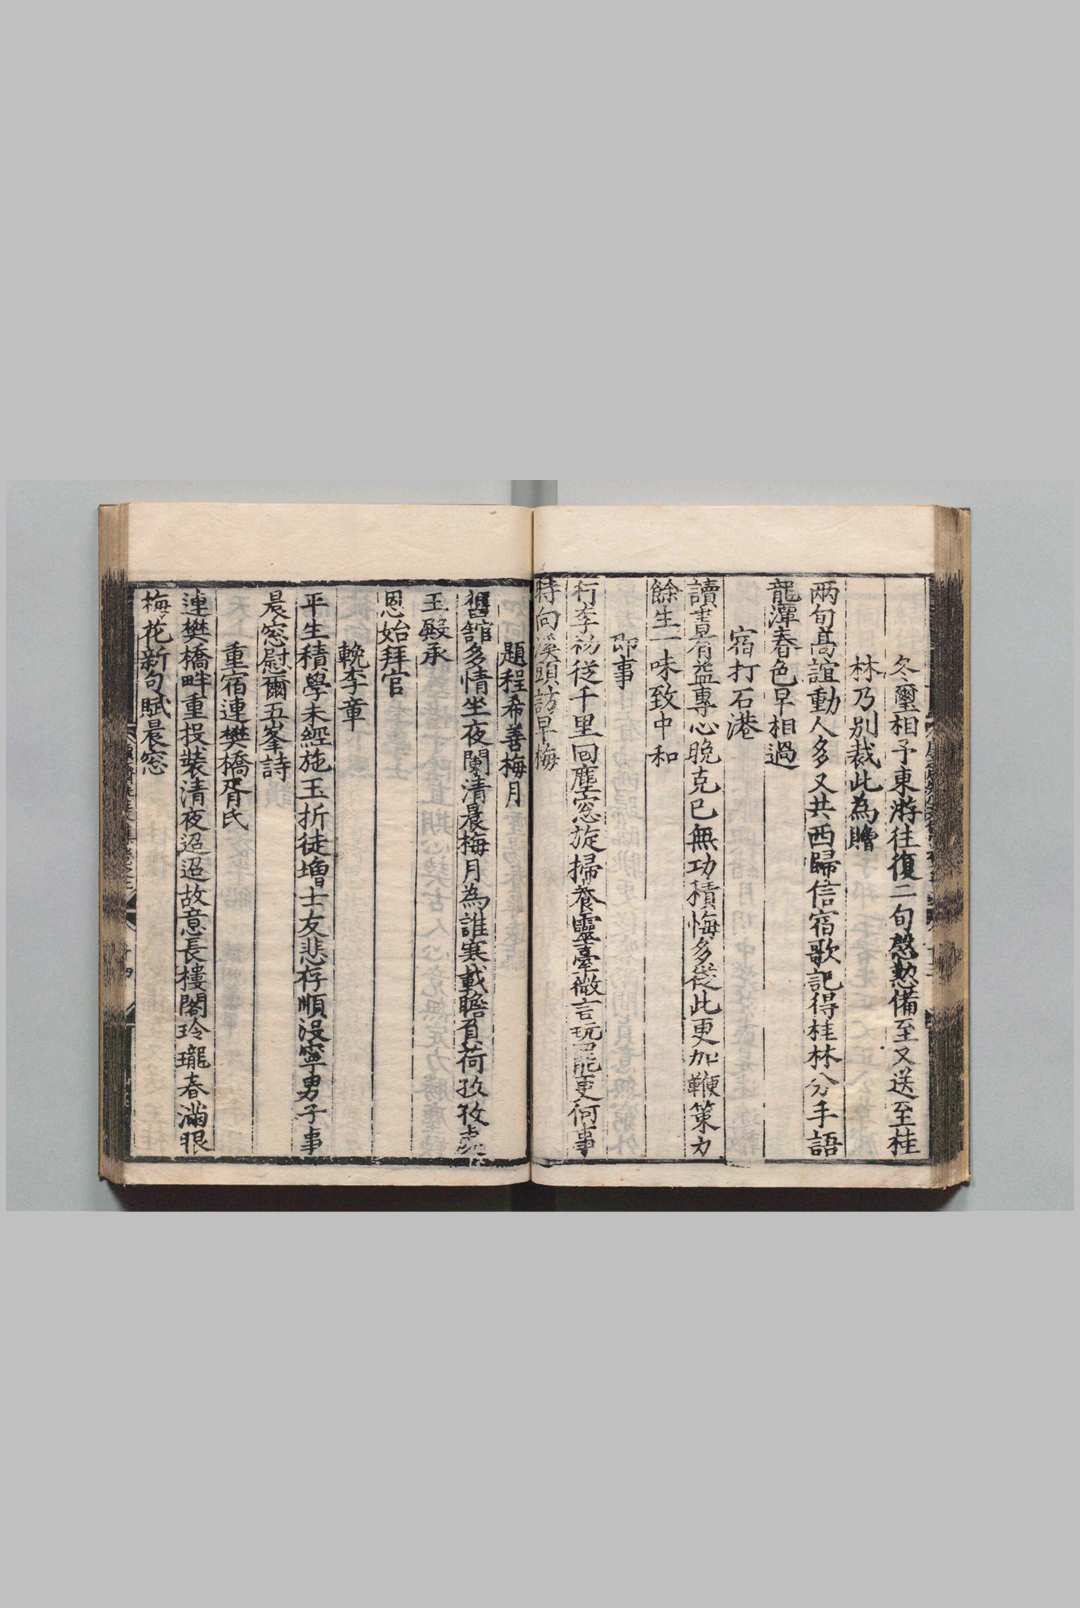 冬璽相予東游往復二旬慇懃備至又送至桂
林乃別裁此為贈
兩旬高誼動人多又共西歸信宿歌記得桂林分手語
龍潭春色早相過
宿打石港
讀書有益專心晚克已無功積悔多從此更加鞭策力
餘生一味致中和
即事
行李初從千里回塵窓旋掃養靈臺微言玩罷更何事
時向溪頭訪早梅
題程希善梅月
舊館多情坐夜闌清晨梅月為誰寒載瞻百荷孜孜
玉殿承
恩始拜官
輓李章
平生積學未經施玉折徒增士友悲存順沒寧男子事
晨窓慰爾五峯詩
重宿連樊橋胥氏
連樊橋畔重投裝清夜迢迢故意長樓閣玲瓏春滿眼
梅花新句賦晨窓